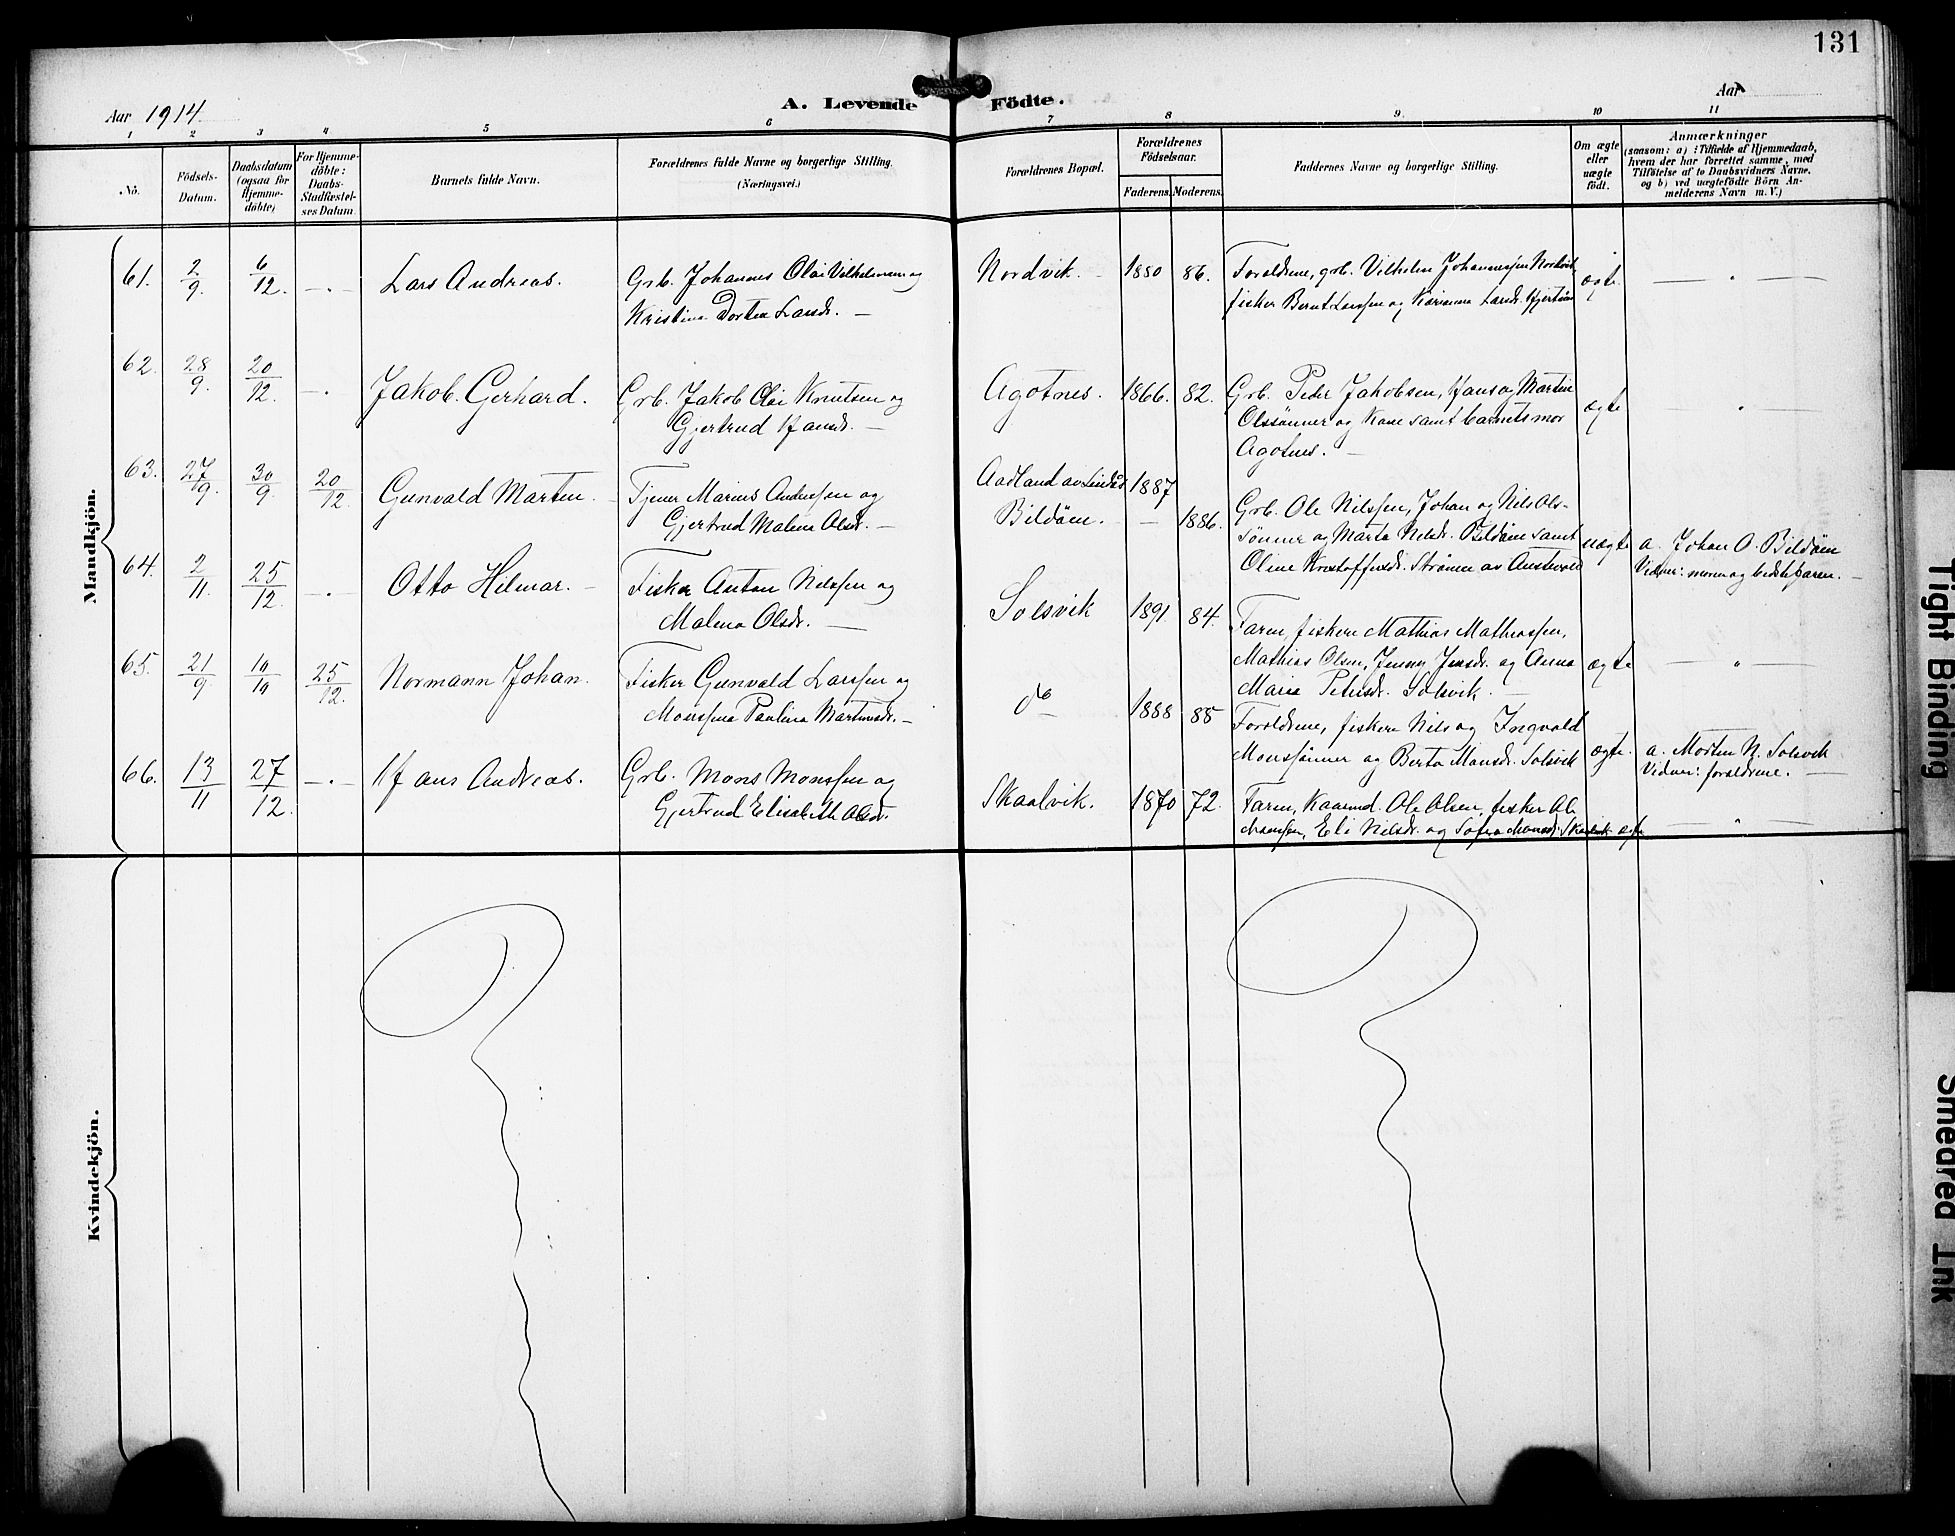 131
Aar 1914.
A. Levende Födte.
Aar
1 2 3 4 5 6 7 8 9. 10 11
No.
Födsels-Datum.
Daabsdatum (ogsaa for Hjemme-döbte)
For Hjemme-döbte: Daabs-Stadfæstel-ses Datum
Barnets fulde Navn.
Forældrenes fulde Navne og borgerlige Stilling.
(Næringsvei.)
Forældrenes Bopæl.
Forældrenes Födselsaar.
Faderens. Moderens.
Faddernes Navne og borgerlige Stilling.
Om ægte eller uægte födt.
Anmærkninger
(saasom: a) : Tilfælde af Hjemmedaab,
hvem der har forrettet samme, med
Tilföielse af to Daabsvidners Navne,
og b) ved uægtefödte Börn An-
melderens Navn m. V.)
Mandkjön.
61. 2/9. 6/12. —〃— Lars Andreas. Grb. Johannes Olai Vilhelmsen og
Kristina Dortea Larsdr. —
Nordvik. 1880 86. Foreldrene, grb. Vilhelm Johannessen Nordvik,
fisker Bernt Larssen og Karianna Larsdr. ægte. — 〃 —
62. 28/9. 20/12. —〃— Jakob Gerhard. Grb. Jakob Olai Knutsen og
Gjertrud Hansdr. —
Agotnes. 1866. 82. Grb. Peder Jakobsen, Hans og Martin
Olssønner og Kone samt barnets mor
Agotnes. — ægte — 〃 —
63. 27/9. 30/9 20/12. Gunvald Martin. Tjener Marius Anderssen og
Gjertrud Malena Olsdr. —
Aadland av Lindås 1887
Bildöen. — 1886.
Grb. Ole Nilssen, Johan og Nils Ols-
sønner og Marta Nilsdr. Bildöen samt
Oline Kristoffersdr. Strømme av Austevold uægte
a. Johan O. Bildöen
Vidner: moren og bedstefaren. —
64. 2/11. 25/12. —〃— Otto Hilmar. — Fisker Anton Nilssen og
Malena Olsdr. —
Solsvik 1891 84. Faren, fiskere Mathias Mathiassen,
Mathias Olsen, Jenny Jensdr. og Anna
Maria Petersdr. Solsvik. — ægte — 〃 —
65. 21/9. 10/10 25/12. Normann Johan. Fisker Gunvald Larssen og
Monsina Paulina Martinusdr. —
do 1888 85 Foreldrene, fiskere Nils og Ingvald
Monssønner og Berta Monsdr. Solsvik ægte.
a. Morten N. Solsvik
Vidner: foreldrene. —
66. 13/11 27/12. —〃— Hans Andreas. Grb. Mons Monssen og
Gjertrud Elisabeth Olsdr.
Skaalvik. 1870 72. Faren, Ole Olsen, fisker Ole
Monssen, Eli Nilsdr. og Sofia Monsdr. Skaalvik ægte — 〃 —
Kvindekjön.
Tight Binding
Smeared Ink